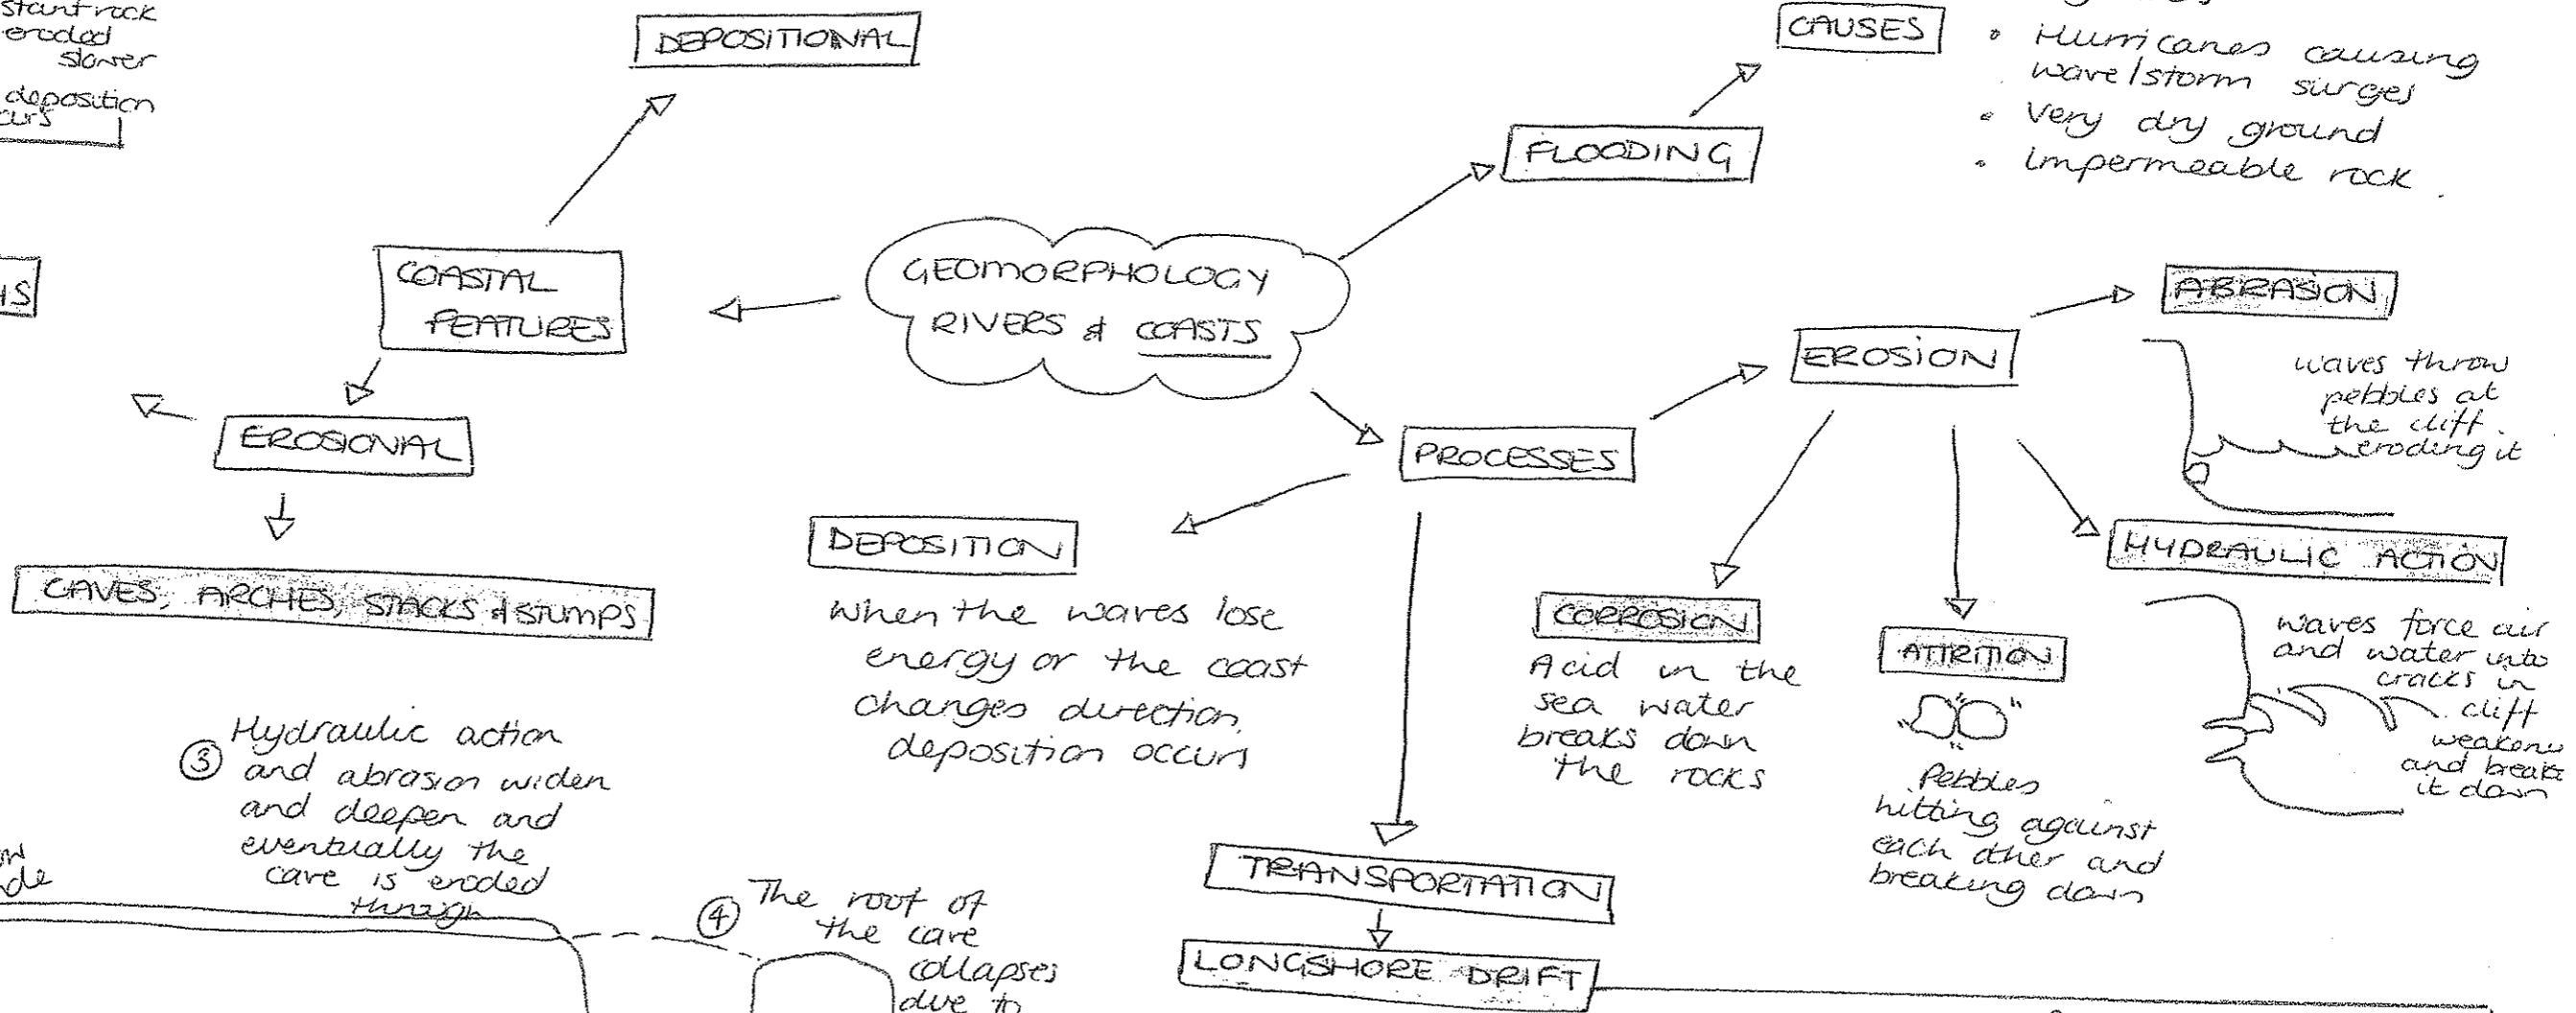 stant rock
eroded
slower
deposition
curs
DEPOSITIONAL
CAUSES
• Hurricanes causing
wave/storm surges
• Very dry ground
• Impermeable rock.
FLOODING
COASTAL
FEATURES
GEOMORPHOLOGY
RIVERS & COASTS
ABRASION
waves throw
pebbles at
the cliff.
eroding it
EROSION
EROSIONAL
PROCESSES
DEPOSITION
when the waves lose
energy or the coast
changes direction,
deposition occurs
HYDRAULIC ACTION
waves force air
and water into
cracks in
cliff
weakens
and breaks
it down
CAVES, ARCHES, STACKS & STUMPS
CORROSION
Acid in the
sea water
breaks down
the rocks
ATTRITION
Pebbles
hitting against
each other and
breaking down
③ Hydraulic action
and abrasion widen
and deepen and
eventually the
cave is eroded
through
④ The roof of
the cave
collapses
due to
TRANSPORTATION
LONGSHORE DRIFT